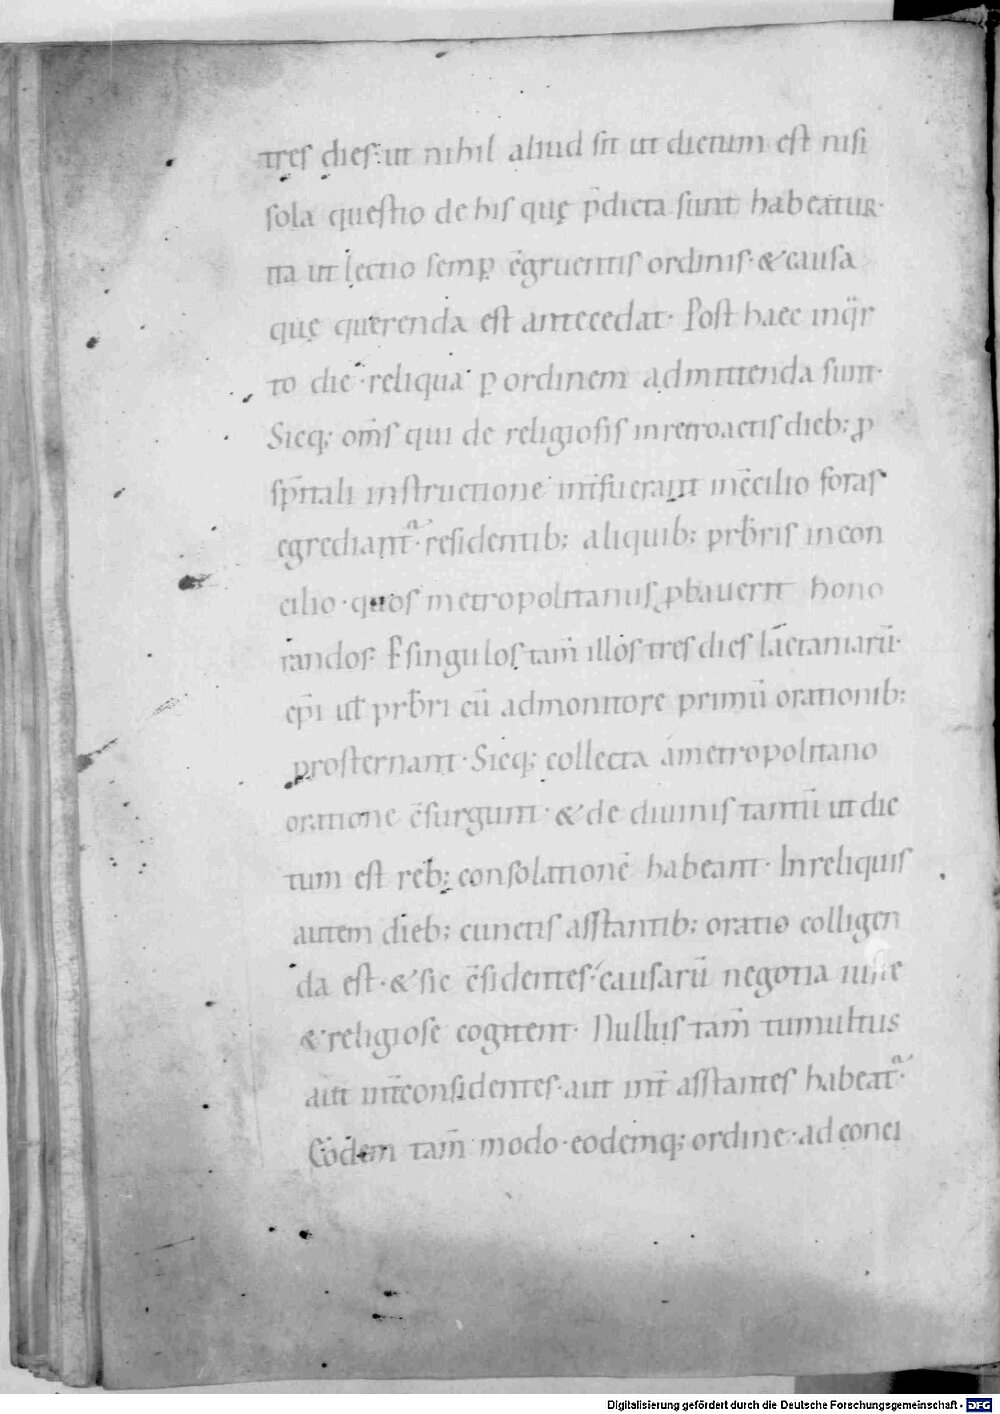 tres dies. ut nihil aliud sit ut dictum est nisi
sola questio de his quę p̄dicta sunt habeatur.
ita ut lectio semp̱ c̄gruentis ordinis. & causa
quę querenda est antecedat. Post haec inq̈r
to die. reliqua ꝑ ordinem admittenda sunt.
Sicq; om̄s qui de religiosis in retroactis dieb; ꝓ
sp̄itali instructione int̄fuerant in c̄cilio foras
egrediant᷑. residentib; aliquib; prb̄ris in con
cilio. quos metropolitanus ꝓbauerit hono
randos. P singulos tam̄ illos tres dies lætaniarū.
ep̄i ut̄ prb̄ri cū admonitore primū orationib;
prosternant. Sicq; collecta a metropolitano
oratione c̄surgunt. & de diuinis tantū ut dic
tum est reb; consolationē habeant. In reliquis
autem dieb; cunctis asstantib; oratio colligen
da est. & sic c̄sidentes. causarū negotia iuste
& religiose cogitent. Nullus tam̄ tumultus
aut int̄ considentes. aut int̄ asstantes habeat᷑.
Eodem tam̄ modo. eodemq; ordine. ad conci
Digitalisierung gefördert durch die Deutsche Forschungsgemeinschaft - DFG